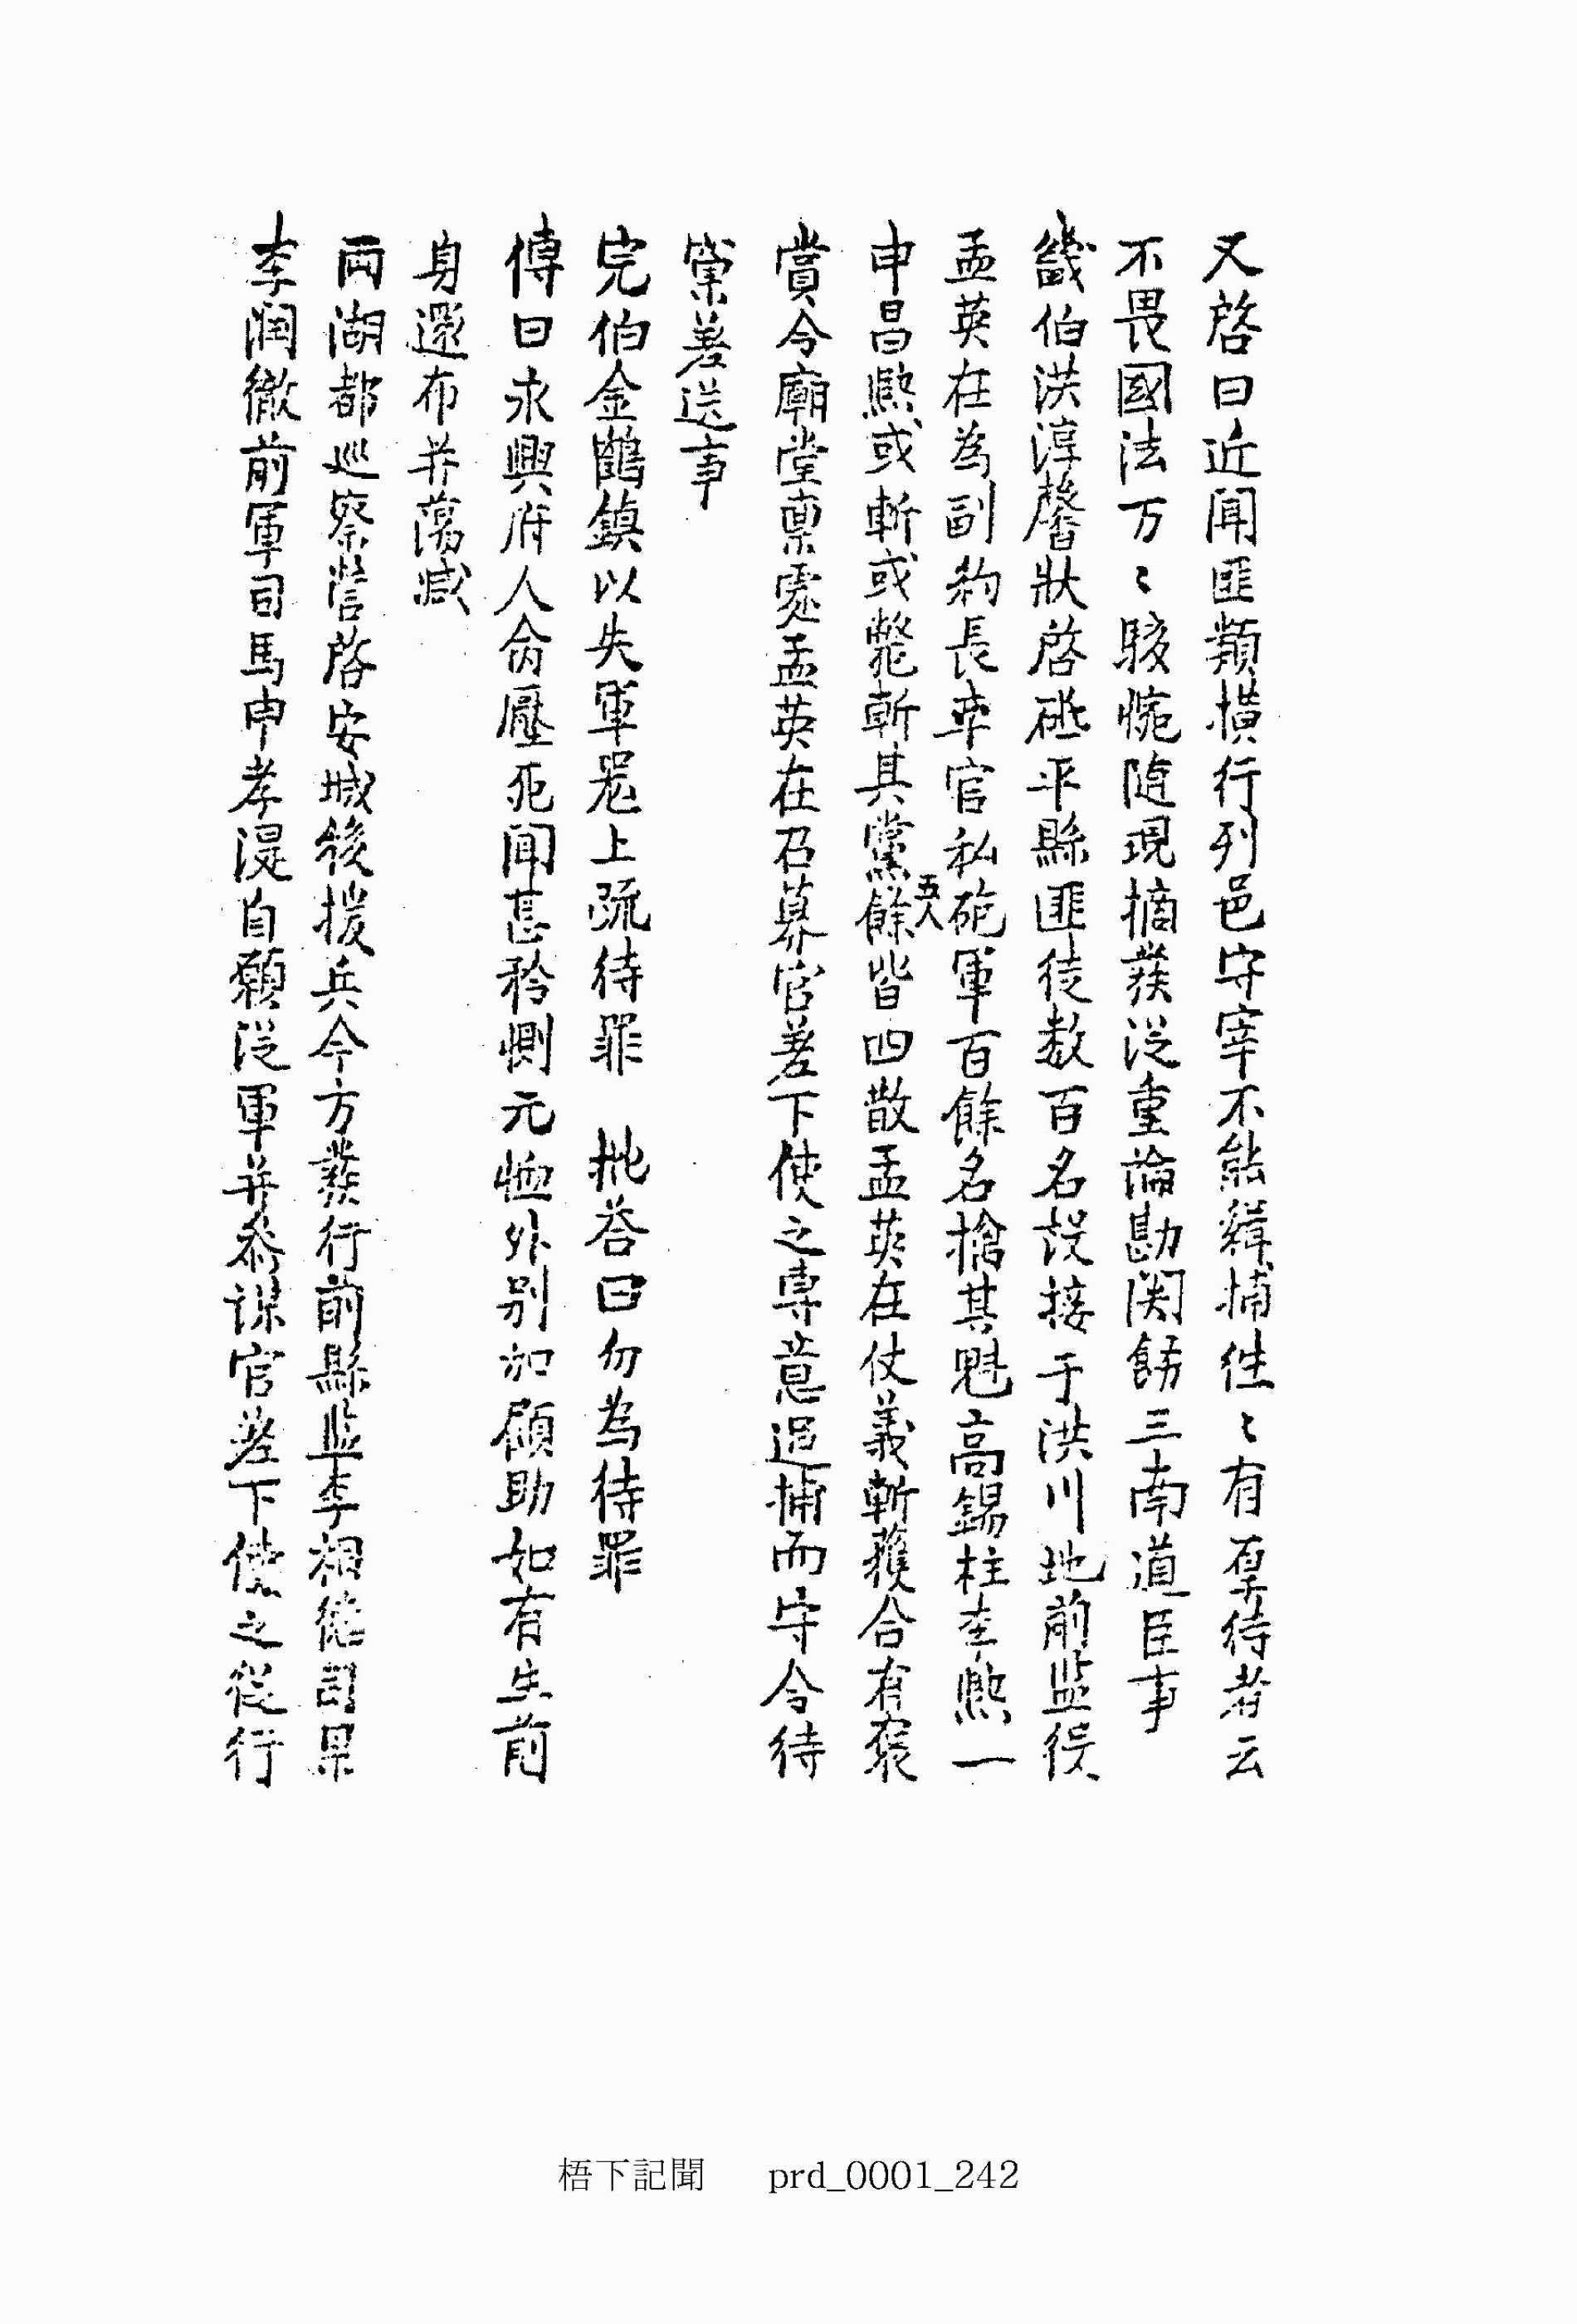 又啓曰近聞匪類橫行列邑守宰不能緝捕徃〻有厚待者云
不畏國法万〻駭惋随現摘發從重論勘関飭三南道臣事
畿伯洪淳馨狀啓砥平縣匪徒数百名設接于洪川地前监役
孟英在為副約長率官私砲軍百餘名擒其魁高錫柱李熙一
申昌熙或斬或斃斬其黨五人餘皆四散孟英在仗義斬獲合有褒
賞令廟堂稟處孟英在召募官差下使之專意追捕而守令待
窠差送事
完伯金鶴鎮以失軍器上疏待罪 批答曰勿為待罪
傳曰永興府人命壓死聞甚矜惻元恤外別加顧助如有生前
身還布并蕩减
兩湖都巡察營啓安城後援兵今方發行前縣监李相德司果
李潤徹前軍司馬申孝湜自願從軍并叅謀官差下使之從行
梧下記聞 prd_0001_242